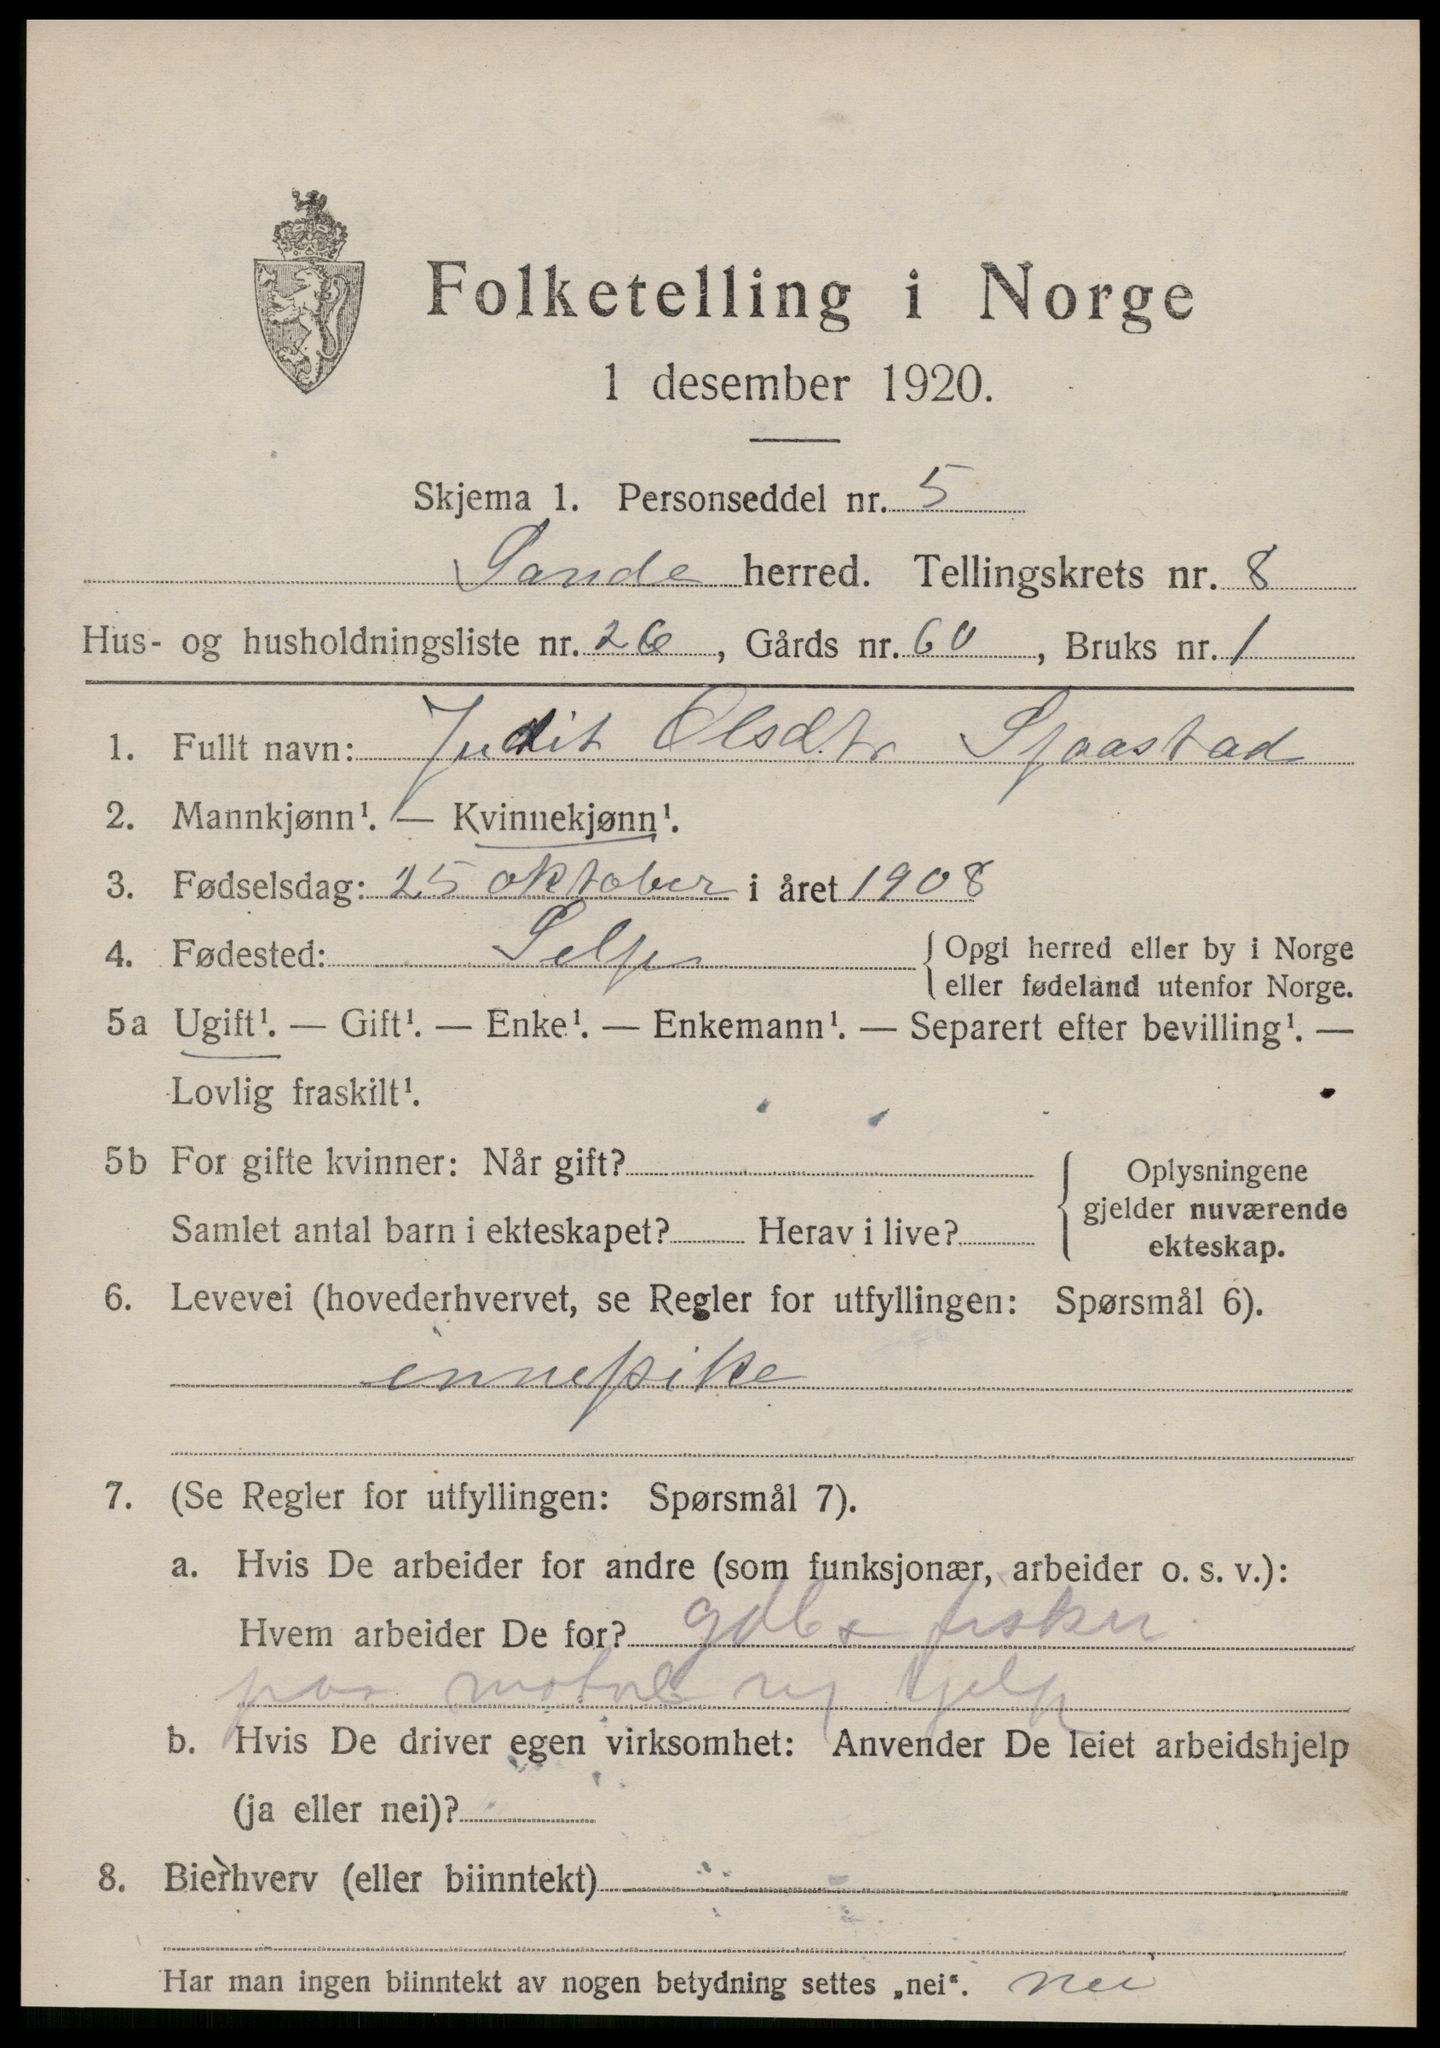 Folketelling i Norge
1 desember 1920.
Skjema 1. Personseddel nr. 5
Sande herred. Tellingskrets nr. 8
Hus- og husholdningsliste nr. 26, Gårds nr. 60, Bruks nr. 1
1. Fullt navn: Judit Olsdtr Sjaastad
2. Mannkjønn¹. — Kvinnekjønn¹.
3. Fødselsdag: 25 oktober i året 1908
4. Fødested: Selje { Opgi herred eller by i Norge
eller fødeland utenfor Norge.
5a Ugift¹. — Gift¹. — Enke¹. — Enkemann¹. — Separert efter bevilling¹. —
Lovlig fraskilt¹.
5b For gifte kvinner: Når gift?
Samlet antal barn i ekteskapet? Herav i live?
{ Oplysningene
gjelder nuværende
ekteskap.
6. Levevei (hovederhvervet, se Regler for utfyllingen: Spørsmål 6).
innepike
7. (Se Regler for utfyllingen: Spørsmål 7).
a. Hvis De arbeider for andre (som funksjonær, arbeider o. s. v.):
Hvem arbeider De for? gdbr fisker
paa
b. Hvis De driver egen virksomhet: Anvender De leiet arbeidshjelp
(ja eller nei)?
8. Bierhverv (eller biinntekt)
Har man ingen biinntekt av nogen betydning settes „nei“. nei